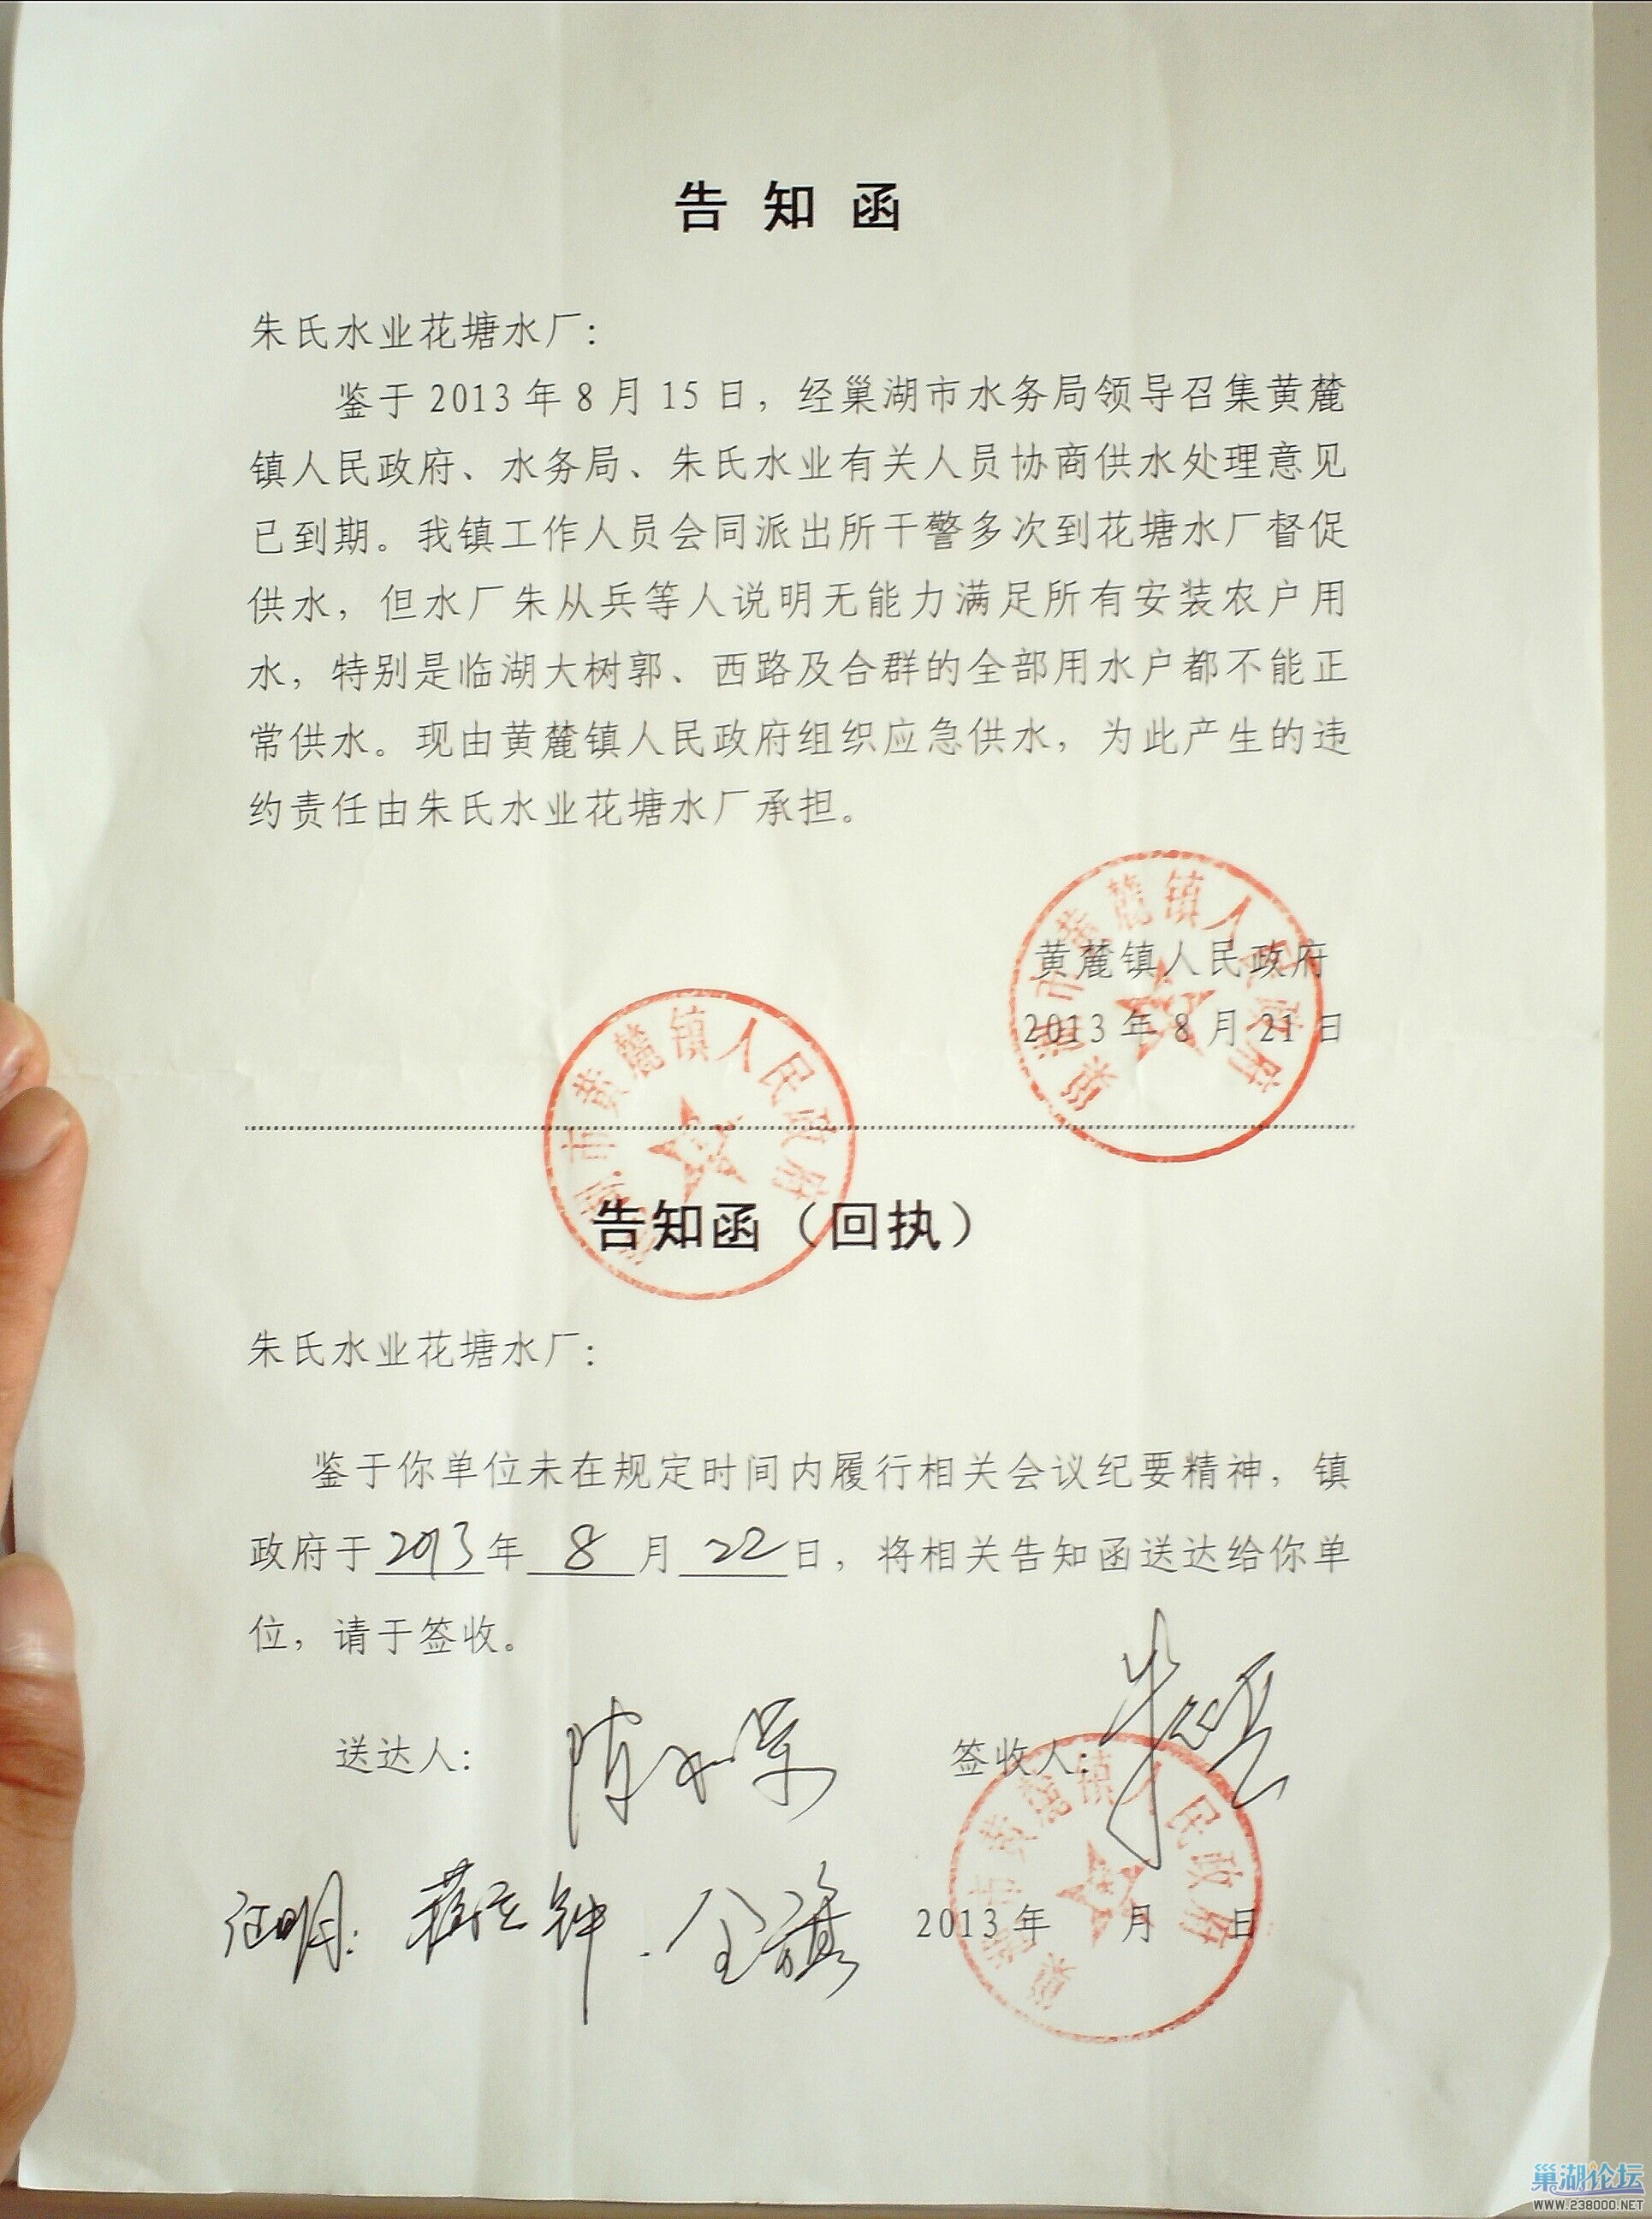 告知函
朱氏水业花塘水厂：
鉴于2013年8月15日，经巢湖市水务局领导召集黄麓
镇人民政府、水务局、朱氏水业有关人员协商供水处理意见
已到期。我镇工作人员会同派出所干警多次到花塘水厂督促
供水，但水厂朱从兵等人说明无能力满足所有安装农户用
水，特别是临湖大树郭、西路及合群的全部用水户都不能正
常供水。现由黄麓镇人民政府组织应急供水，为此产生的违
约责任由朱氏水业花塘水厂承担。
黄麓镇人民政府
2013年8月21日
巢湖市黄麓镇人民政府
湖市黄麓镇人民政府
告知函（回执）
朱氏水业花塘水厂：
鉴于你单位未在规定时间内履行相关会议纪要精神，镇
政府于2013年8月22日，将相关告知函送达给你单
位，请于签收。
送达人：陈 签收人：朱从兵
证明：
2013年 月 日
巢湖市黄麓镇人民政府
巢湖论坛
WWW.238000.NET